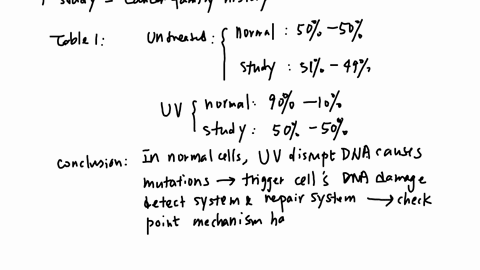 study = cancer family history
Table 1: Untreated: { normal: 50% - 50%
study: 51% - 49%
UV { normal: 90% - 10%
study: 50% - 50%
conclusion: In normal cells, UV disrupt DNA causes
mutations → trigger cell's DNA damage
detect system & repair system → check
point mechanism ha